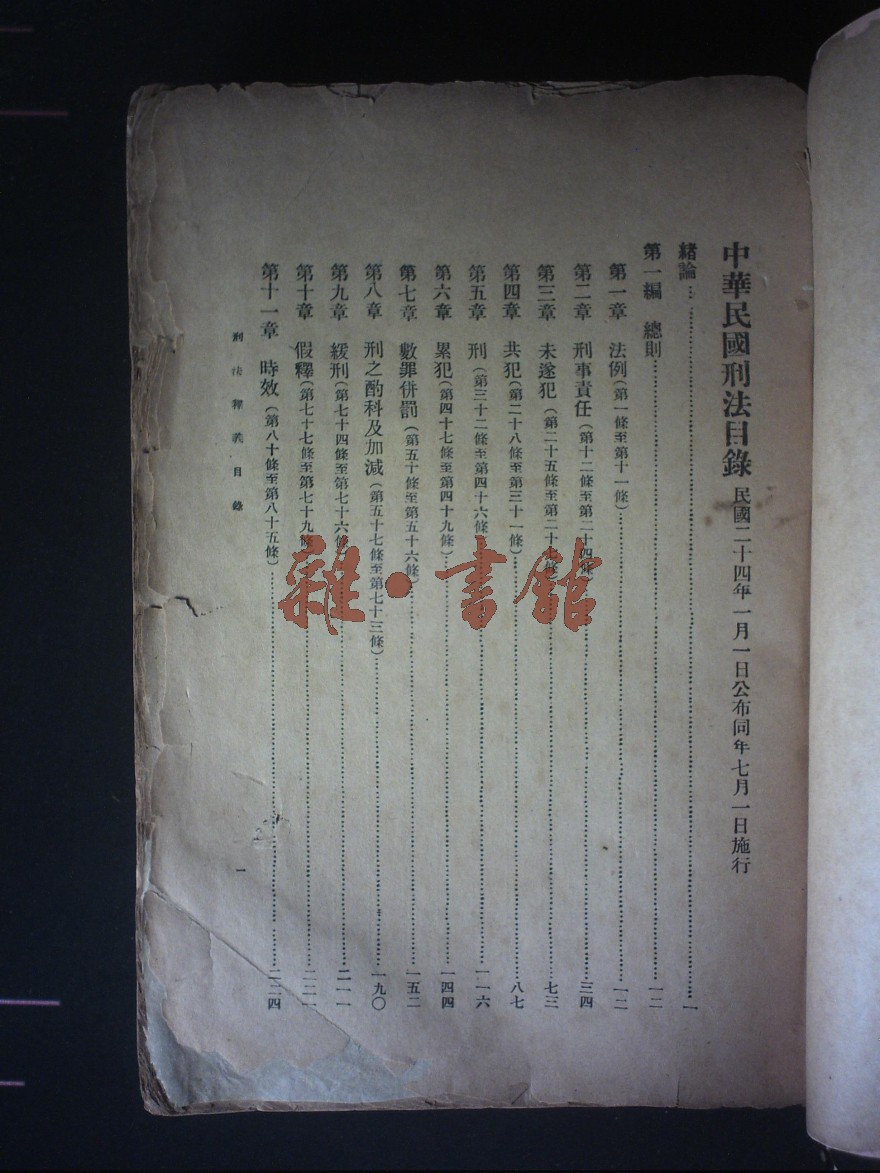 中華民國刑法目錄 民國二十四年一月一日公布同年七月一日施行
緒論……一
第一編 總則……一二
第一章 法例(第一條至第十一條)……一二
第二章 刑事責任(第十二條至第二十四條)……三四
第三章 未遂犯(第二十五條至第二十七條)……七三
第四章 共犯(第二十八條至第三十一條)……八七
第五章 刑(第三十二條至第四十六條)……一一六
第六章 累犯(第四十七條至第四十九條)……一四四
第七章 數罪併罰(第五十條至第五十六條)……一五二
第八章 刑之酌科及加減(第五十七條至第七十三條)……一九〇
第九章 緩刑(第七十四條至第七十六條)……二一一
第十章 假釋(第七十七條至第七十九條)……二二一
第十一章 時效(第八十條至第八十五條)……二二四
刑法釋義目錄 一
雜·書館